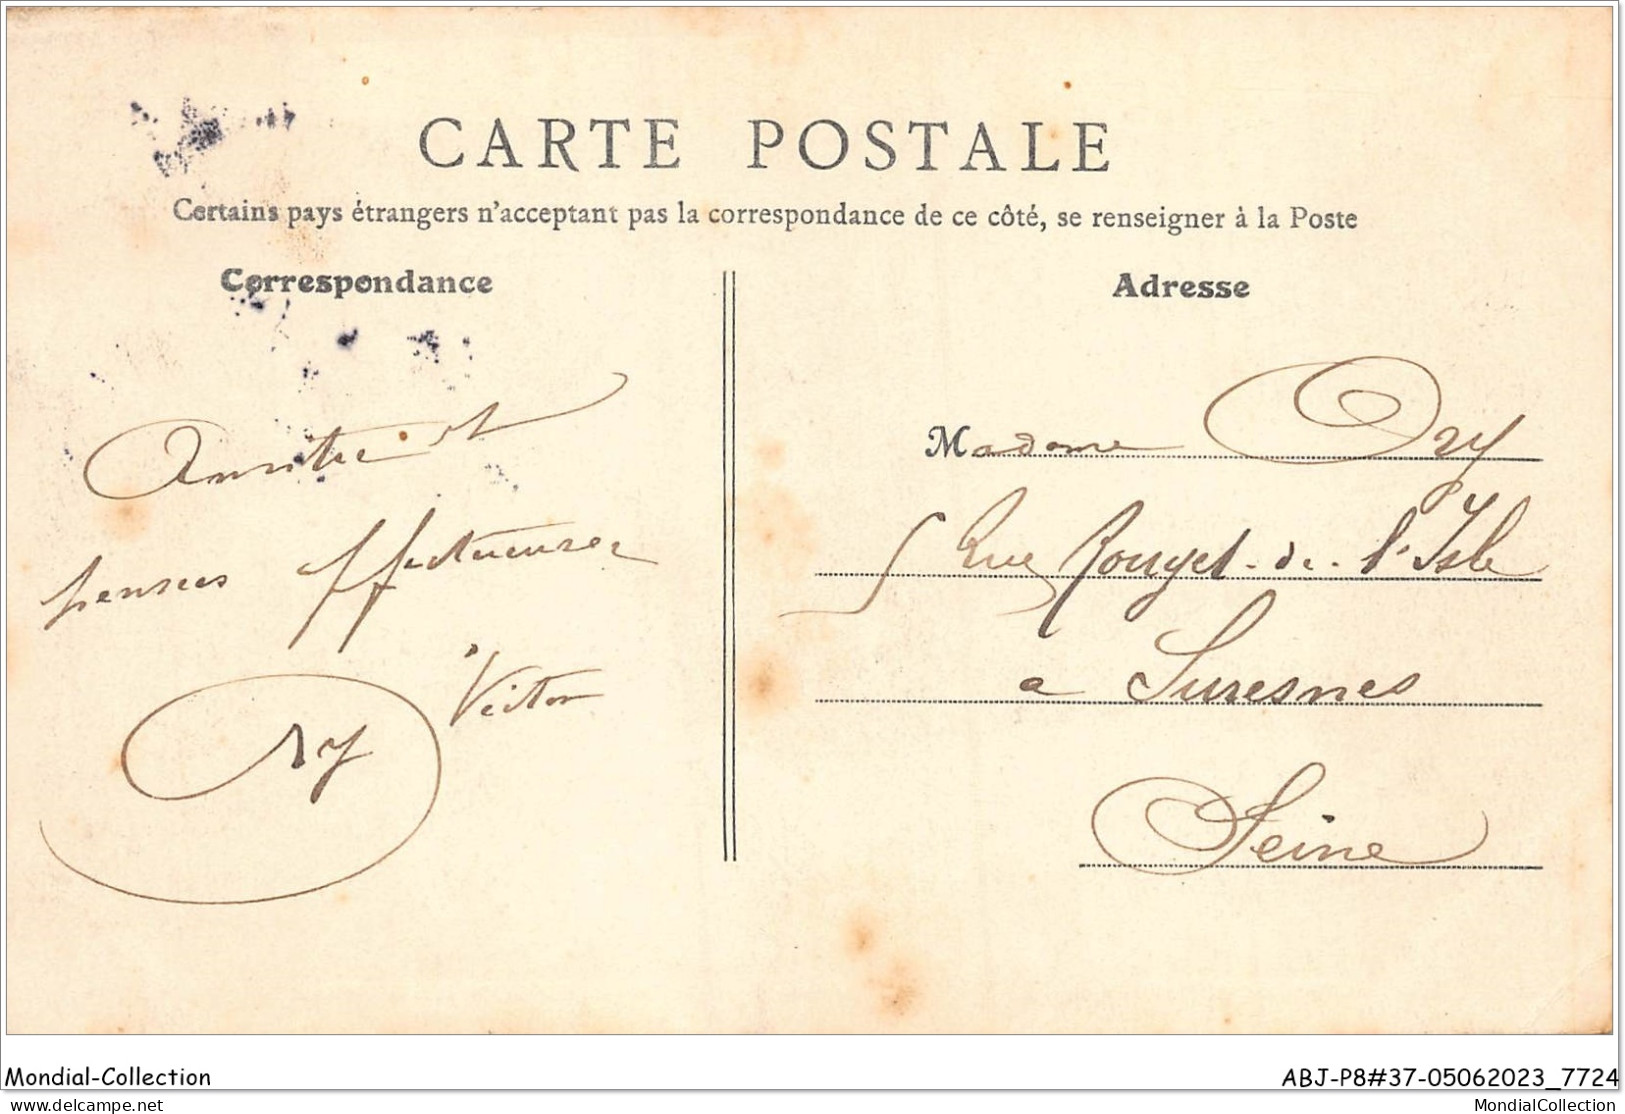 CARTE POSTALE
Certains pays étrangers n'acceptant pas la correspondance de ce côté, se renseigner à la Poste
Correspondance
Amitié et
pensées affectueuses
Victor
Adresse
Madame Ory
5 Rue Rouget-de-l'Isle
a Suresnes
Seine
Mondial-Collection
ABJ-P8#37-05062023_7724
MondialCollection
delcampe.net
MondialCollection